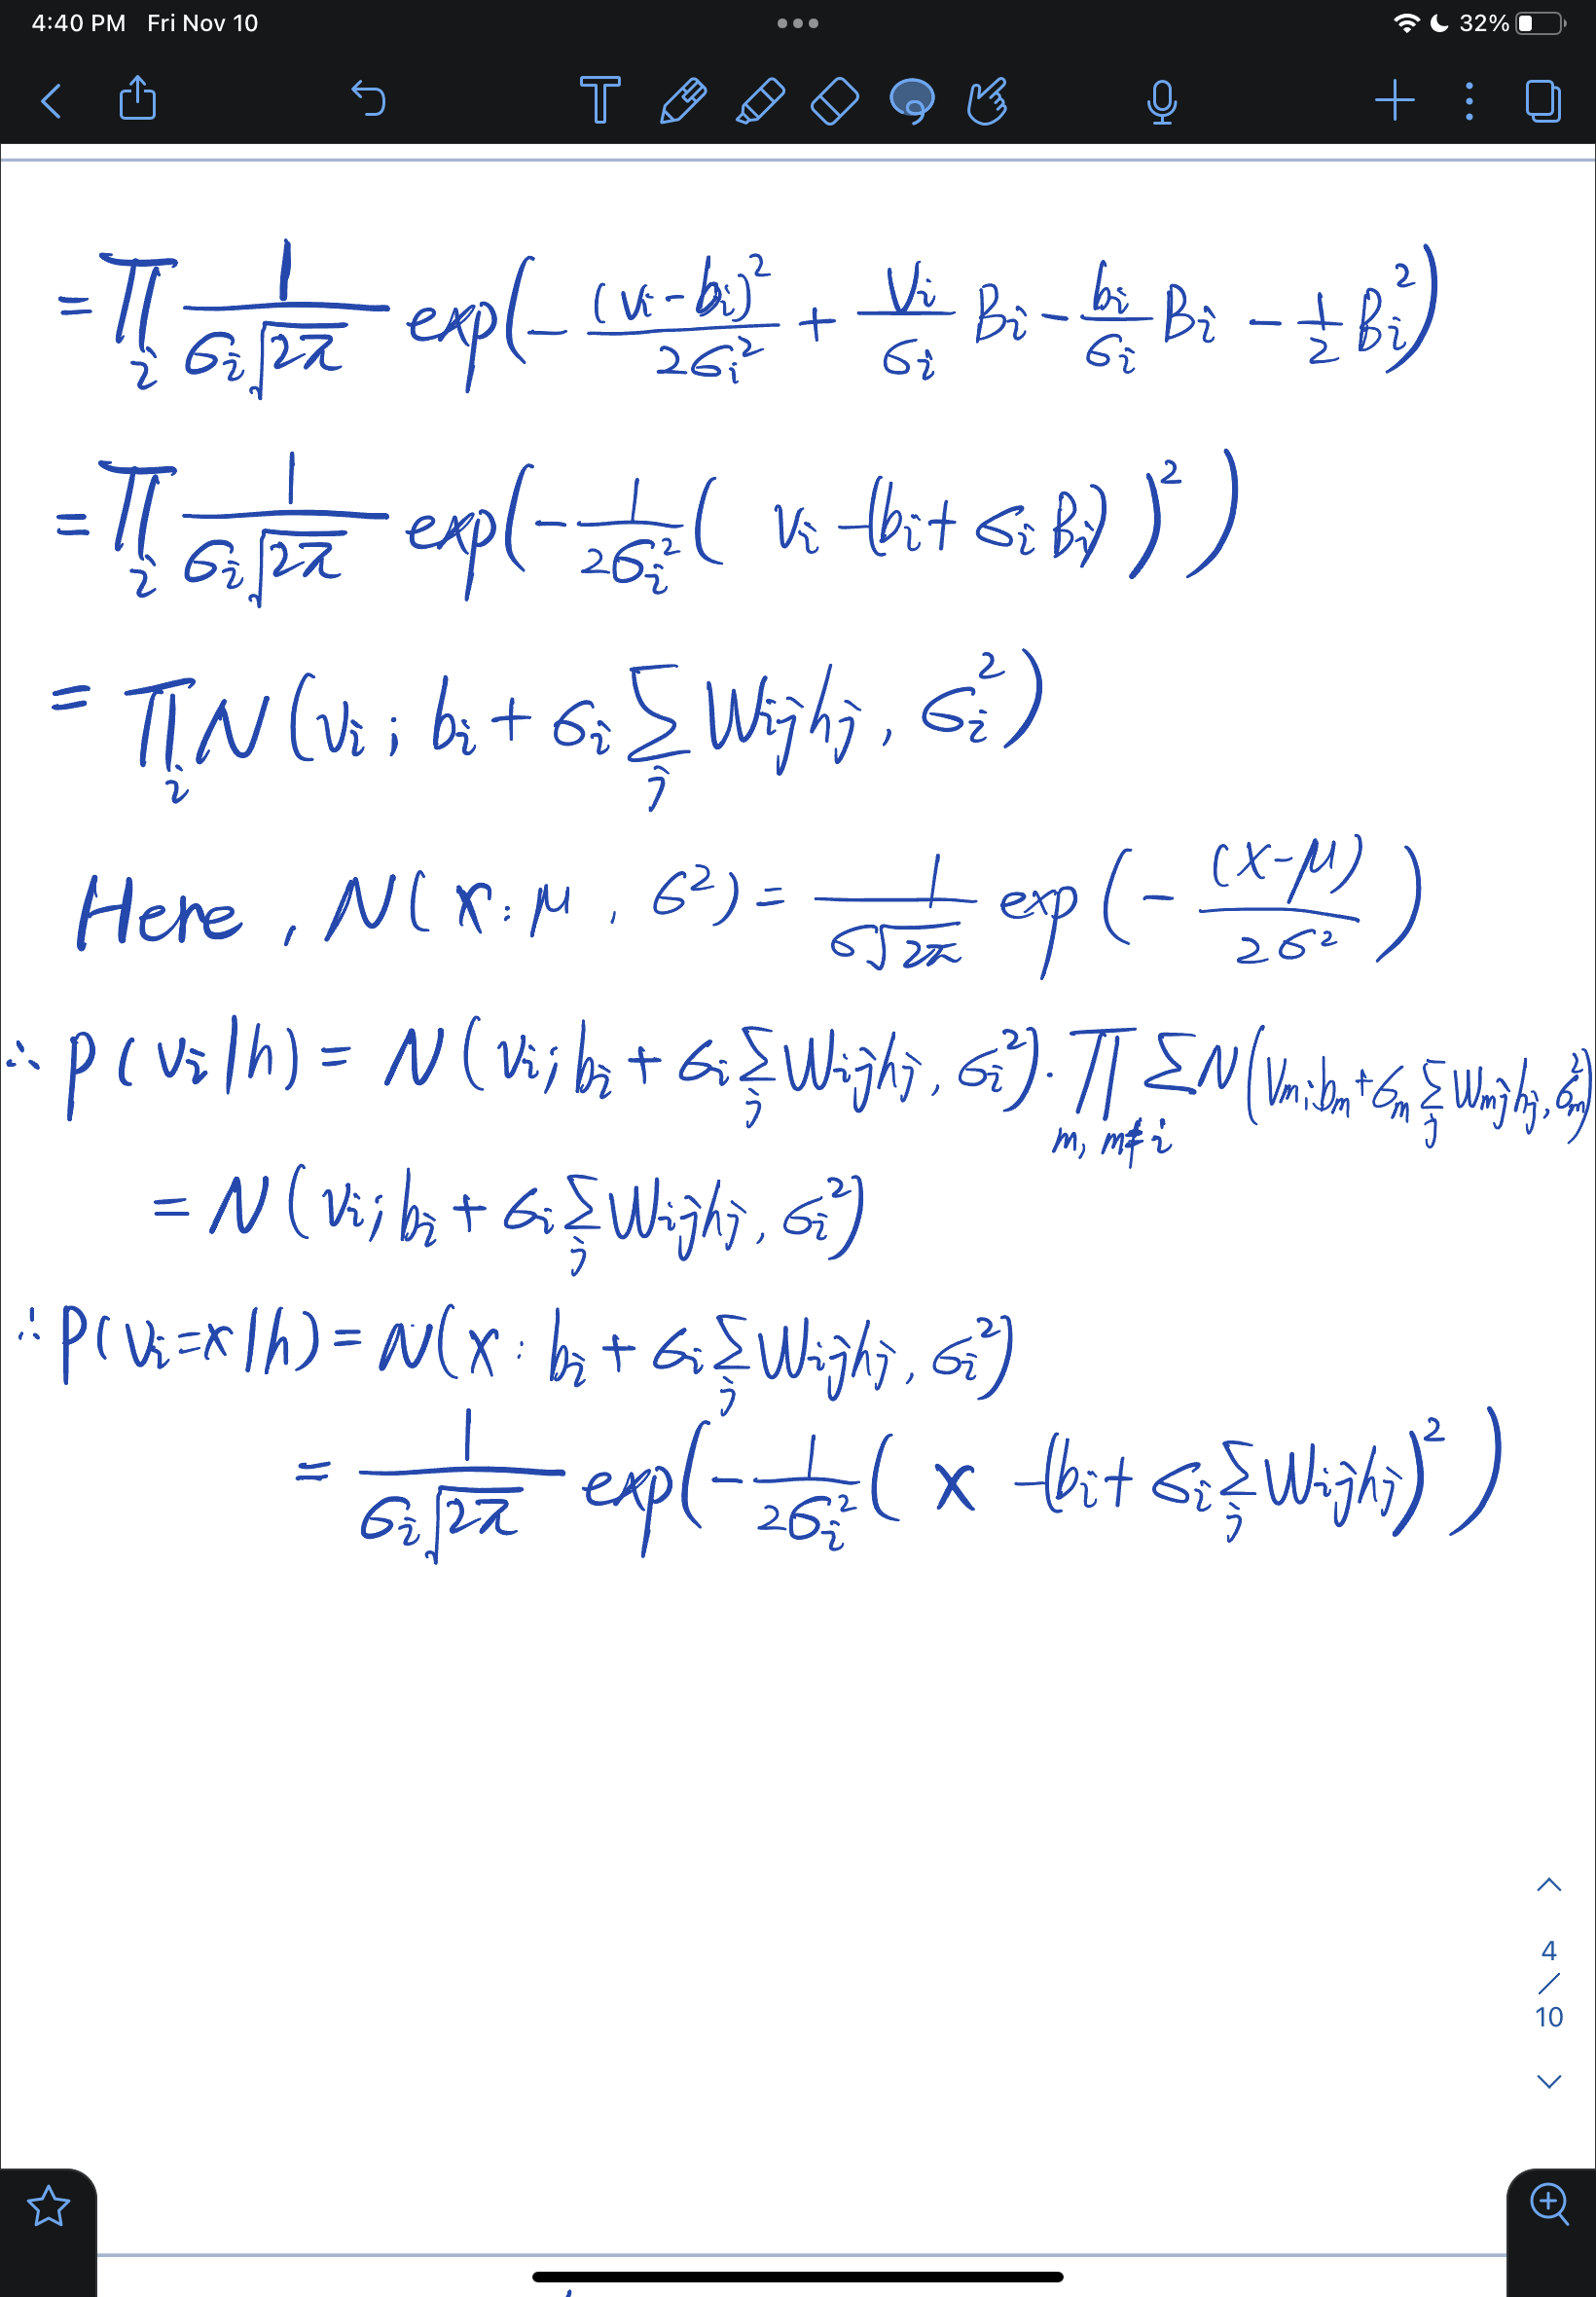 4:40 PM Fri Nov 10 32%
= ∏_i 1/(σ_i√2π) exp(- (v_i - b_i)²/(2σ_i²) + v_i/σ_i B_i - b_i/σ_i B_i - 1/2 B_i²)
= ∏_i 1/(σ_i√2π) exp(- 1/(2σ_i²) ( v_i - (b_i + σ_i B_i) )² )
= ∏_i N(v_i ; b_i + σ_i ∑_j W_ij h_j , σ_i²)
Here , N( x : μ , σ²) = 1/(σ√2π) exp(- (x-μ)/(2σ²) )
∴ p( v_i | h) = N( v_i ; b_i + σ_i ∑_j W_ij h_j , σ_i²) · ∏_{m, m≠i} ∑ N(v_m ; b_m + σ_m ∑_j W_mj h_j , σ_m²)
= N( v_i ; b_i + σ_i ∑_j W_ij h_j , σ_i²)
∴ P( v_i = x | h) = N( x : b_i + σ_i ∑_j W_ij h_j , σ_i²)
= 1/(σ_i√2π) exp(- 1/(2σ_i²) ( x - (b_i + σ_i ∑_j W_ij h_j)² )
4
/
10